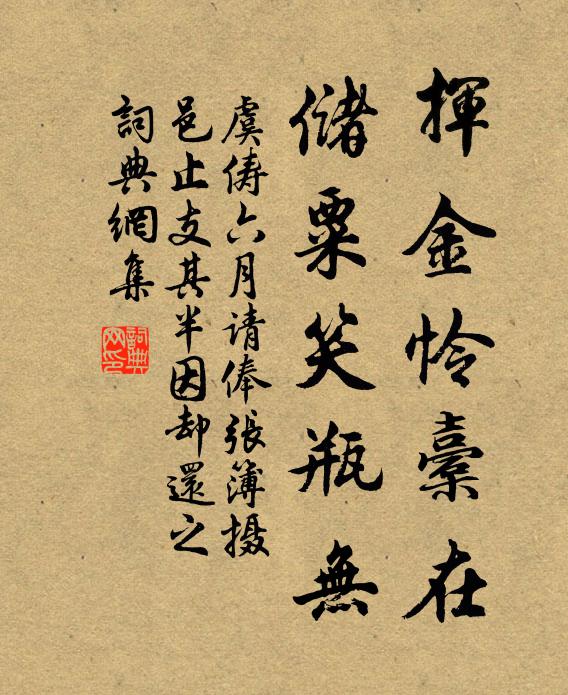 揮金怜橐在
儲粟笑瓶無
虞儔六月请俸張簿摄
邑止支其半因却還之
詞典網集
詞典
网印